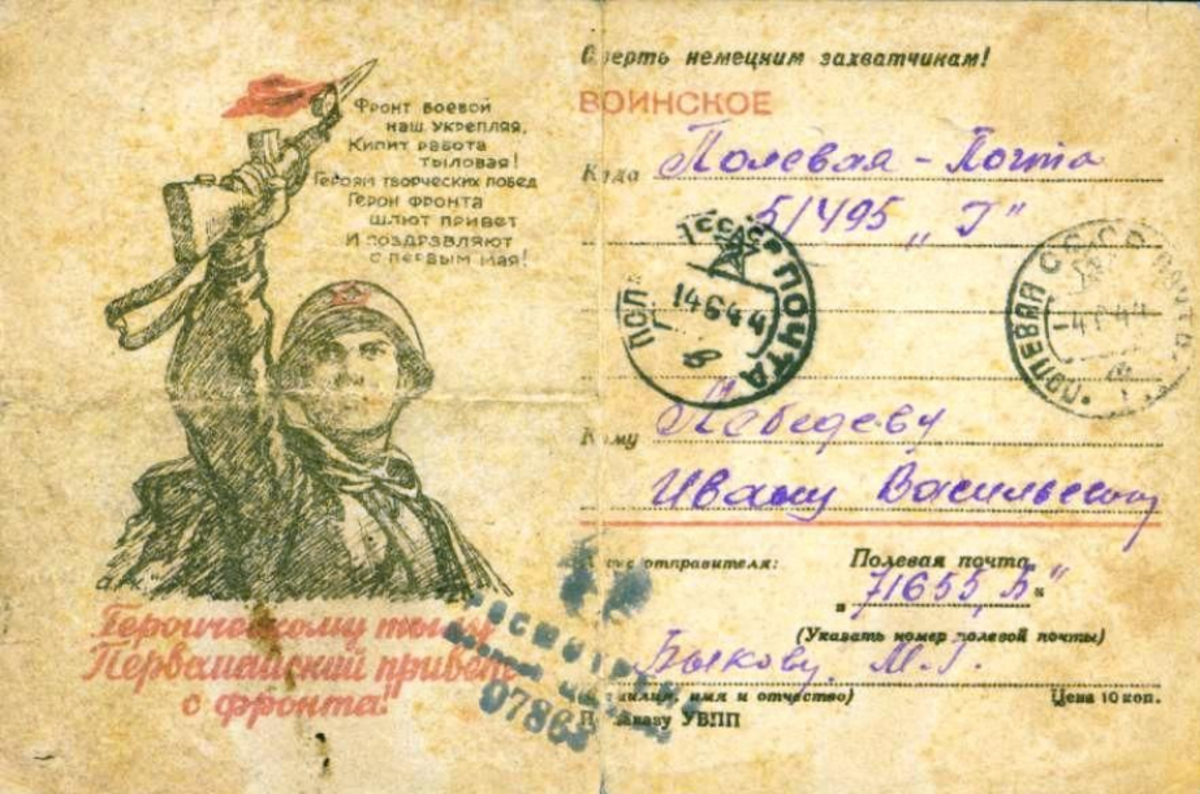 Фронт боевой
наш укрепляя,
Кипит работа
тыловая!
Героям творческих побед
Герои фронта
шлют привет
И поздравляют
с первым мая!
Героическому тылу
Первомайский привет
с фронта!
Смерть немецким захватчикам!
ВОИНСКОЕ
Куда Полевая - Почта
51495 „Г"
СССР ПОЧТА
14 6 44
ПОЛЕВАЯ СССР ПОЧТА
-4 6 44
Кому Лебедеву
Ивану Васильевичу
отправителя: Полевая почта
71655 „Б"
(Указать номер полевой почты)
Быкову. М. Г.
имя и отчество) Цена 10 коп.
УВПП